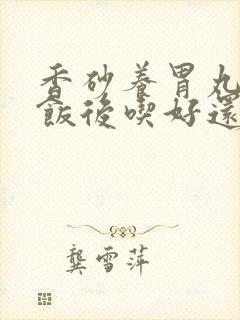 香砂養胃丸
飯後喫好還
龔雪萍